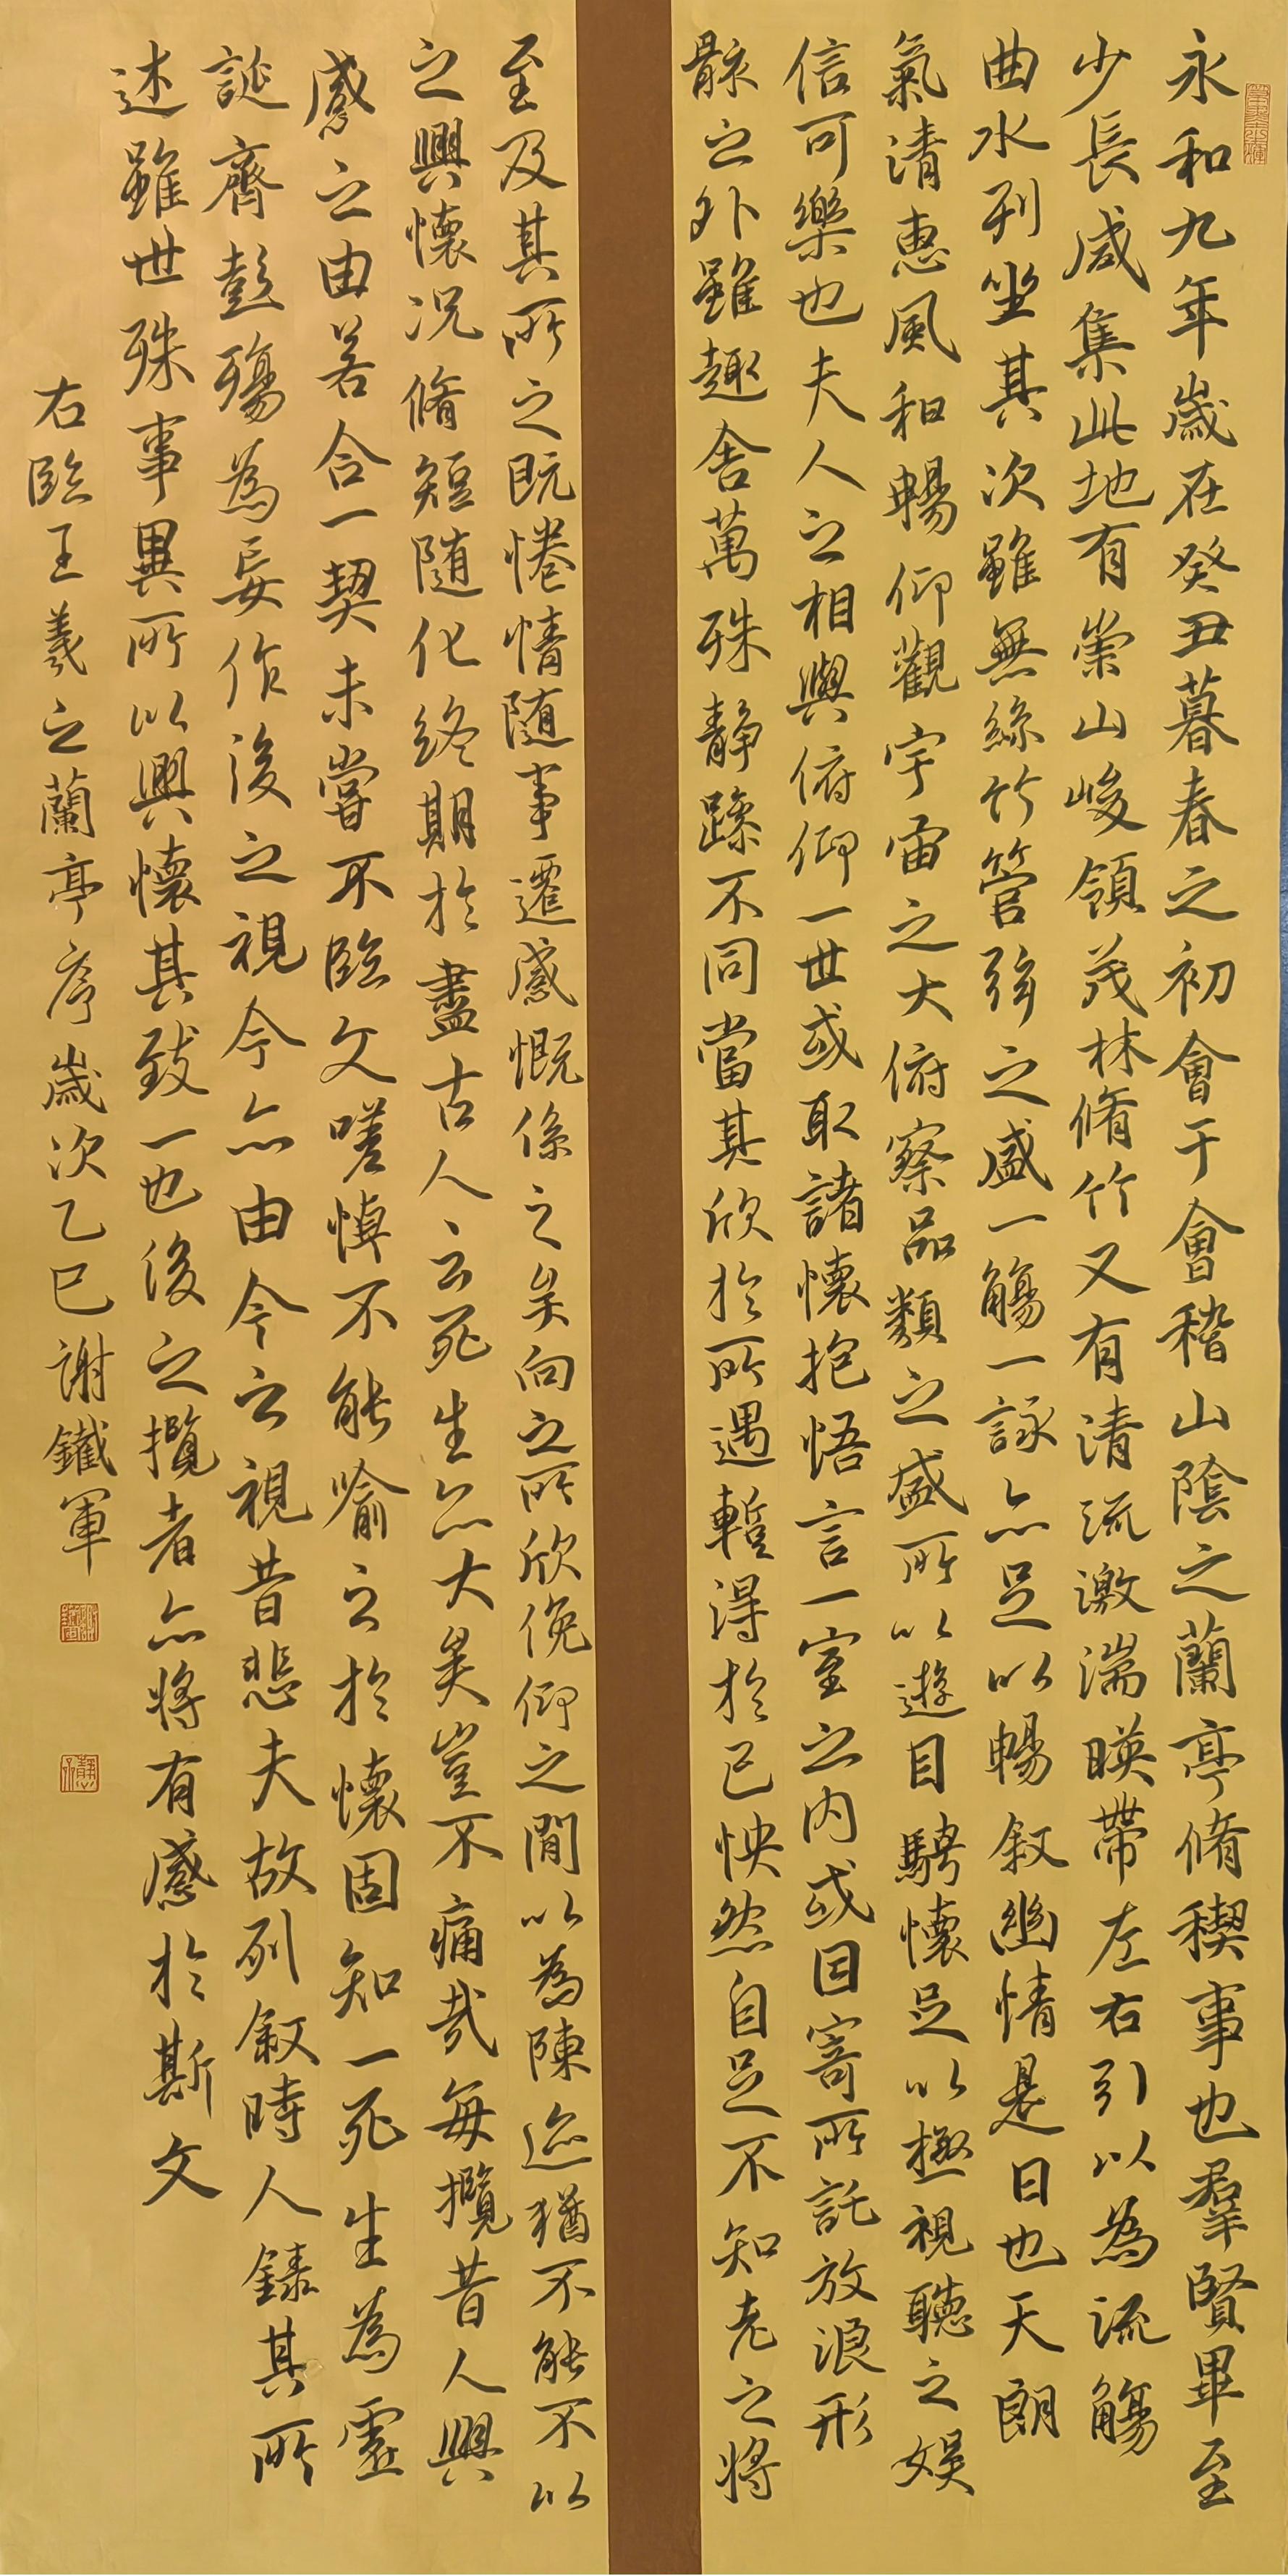 永和九年歲在癸丑暮春之初會于會稽山陰之蘭亭脩稧事也羣賢畢至
少長咸集此地有崇山峻領茂林脩竹又有清流激湍暎帶左右引以為流觴
曲水列坐其次雖無絲竹管弦之盛一觴一詠亦足以暢敘幽情是日也天朗
氣清惠風和暢仰觀宇宙之大俯察品類之盛所以遊目騁懷足以極視聽之娛
信可樂也夫人之相與俯仰一世或取諸懷抱悟言一室之內或因寄所託放浪形
骸之外雖趣舍萬殊靜躁不同當其欣於所遇暫得於己怏然自足不知老之將
至及其所之既惓情隨事遷感慨係之矣向之所欣俛仰之閒以為陳迹猶不能不以
之興懷況脩短隨化終期於盡古人云死生亦大矣豈不痛哉每攬昔人興
感之由若合一契未嘗不臨文嗟悼不能喻之於懷固知一死生為虛
誕齊彭殤為妄作後之視今亦由今之視昔悲夫故列敘時人錄其所
述雖世殊事異所以興懷其致一也後之攬者亦將有感於斯文
右臨王羲之蘭亭序歲次乙巳謝鐵軍